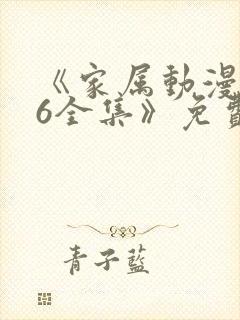 《家属动漫
6全集》免費
青子藍